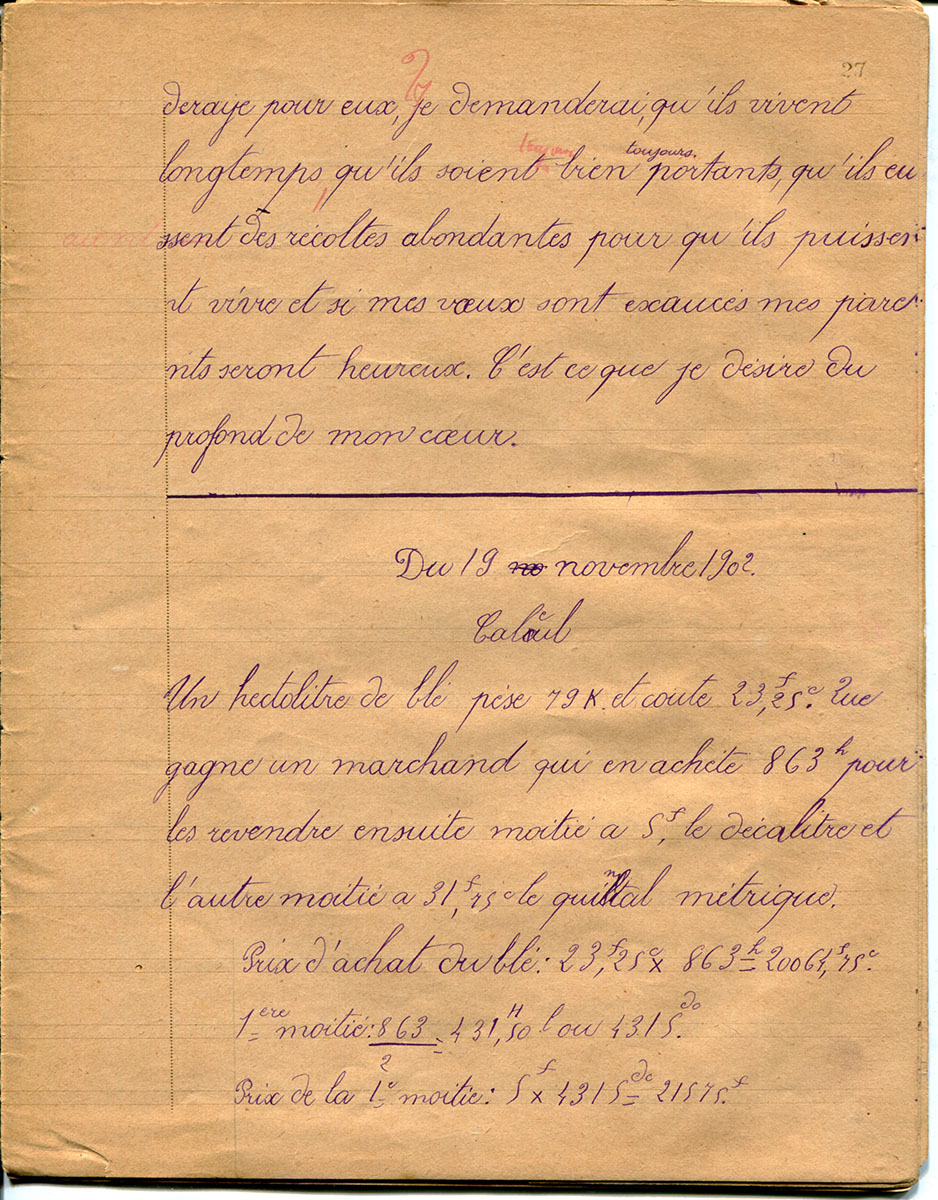 27
deraije pour eux, je demanderai, qu'ils vivent
toujours.
longtemps qu'ils soient bien portants, qu'ils eu
ssent des récoltes abondantes pour qu'ils puissen
nt vivre et si mes vœux sont exaucés mes pare
nts seront heureux. C'est ce que je désire du
profond de mon cœur.
Du 19 no novembre 1902.
Calcul
Un hectolitre de blé pèse 79 K. et coute 23f,25c. Que
gagne un marchand qui en achète 863 h pour
les revendre ensuite moitié a 5f, le décalitre et
l'autre moitié a 31f,75c le quintal métrique.
Prix d'achat du blé: 23f,25c x 863h = 20064f,75c.
1ère moitié: 863/2 = 431H,50 l ou 4315 do.
Prix de la 1e moitié: 5f x 4315 do = 21575f.